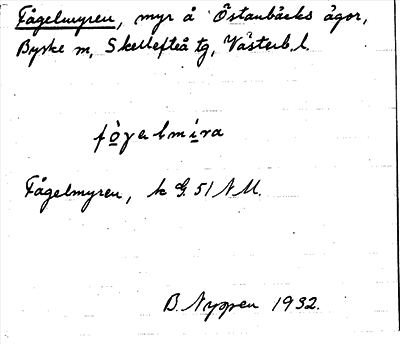 Fågelmyren, myr å Östanbäcks ägor,
Byske m, Skellefteå tg, Västerb. l.
fògelmira
Fågelmyren, k G. 51 N M.
B. Nyman 1932.